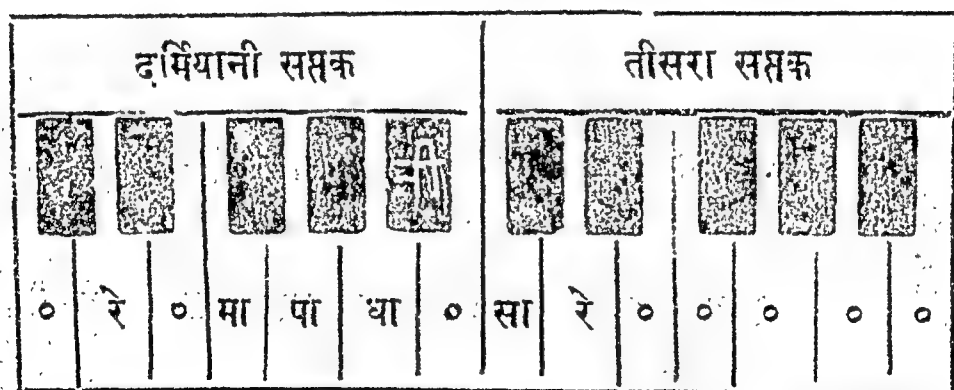 दर्मियानी सप्तक तीसरा सप्तक
नी
० रे ० मा पा धा ० सा रे ० ० ० ० ०